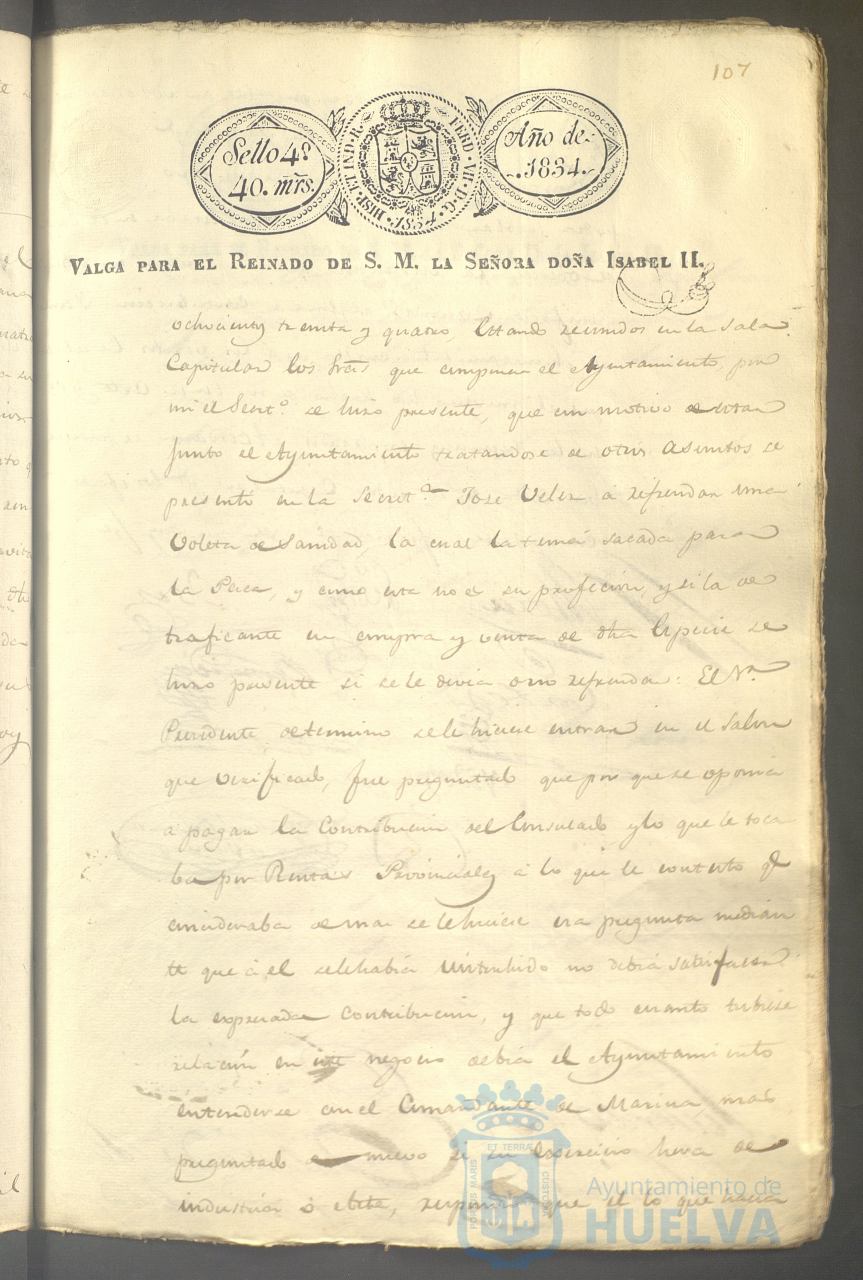 107
Sello 4º
40. mrs.
HISP. ET IND. R. FERD. VII. D. G. 1834.
Año de
1834.
VALGA PARA EL REINADO DE S. M. LA SEÑORA DOÑA ISABEL II.
ochocientos treinta y quatro, estando reunidos en la Sala
Capitular los Sres que componen el Ayuntamiento, por
mi el Secretº. se hizo presente, que con motivo de estar
junto el Ayuntamiento tratandose de otros asuntos se
presentó en la Secretª Jose Velez á refrendar una
Voleta de Sanidad, la cual la tenia sacada para
la Pesca, y como esta no es su profecion, y si la de
traficante en compra y venta de dha Especie se
hizo presente si se le devia ó no refrendar: El Sr.
Presidente determinó se le hiciese entrar en el Salon
que verificado, fue preguntado que por que se oponia
a pagar la Contribucion del Consulado y lo que le toca
ba por Rentas Provinciales á lo que le contestó q
consideraba de mas se le hiciese esa pregunta median
te que á el se le habia no debia satisfacer
la espresada Contribucion, y que todo cuanto tubiese
relacion en este negocio debia el Ayuntamiento
entenderse con el Comandante de Marina, mas
preguntado de nuevo si su Exercicio hera de
industria ó , respondió que el lo que hacia
DOMUS MARIS ET TERRÆ CUSTODIA
Ayuntamiento de
HUELVA